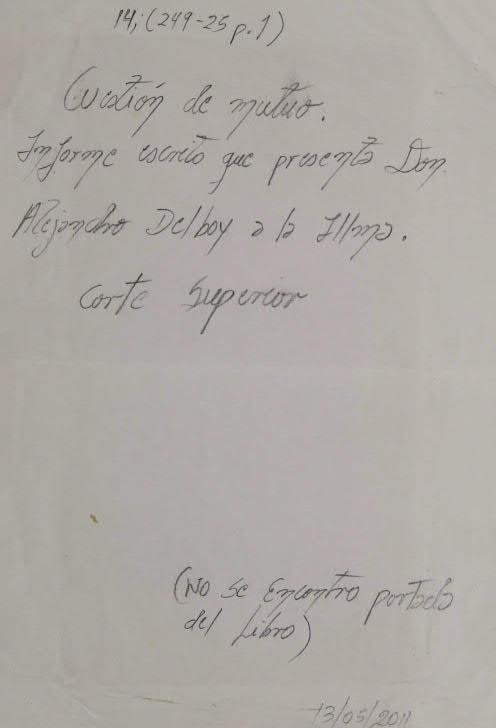 14; (249-25 p. 1)
Cuestión de mutuo.
Informe escrito que presenta Don
Alejandro Delboy a la Illma.
Corte Superior
(No se Encontro portada
del Libro)
13/05/2011